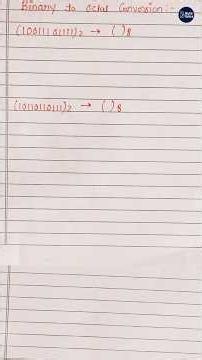 Binary to octal Conversion :-
(100111 01111)₂ → ( )₈
(1011011011)₂ → ( )₈